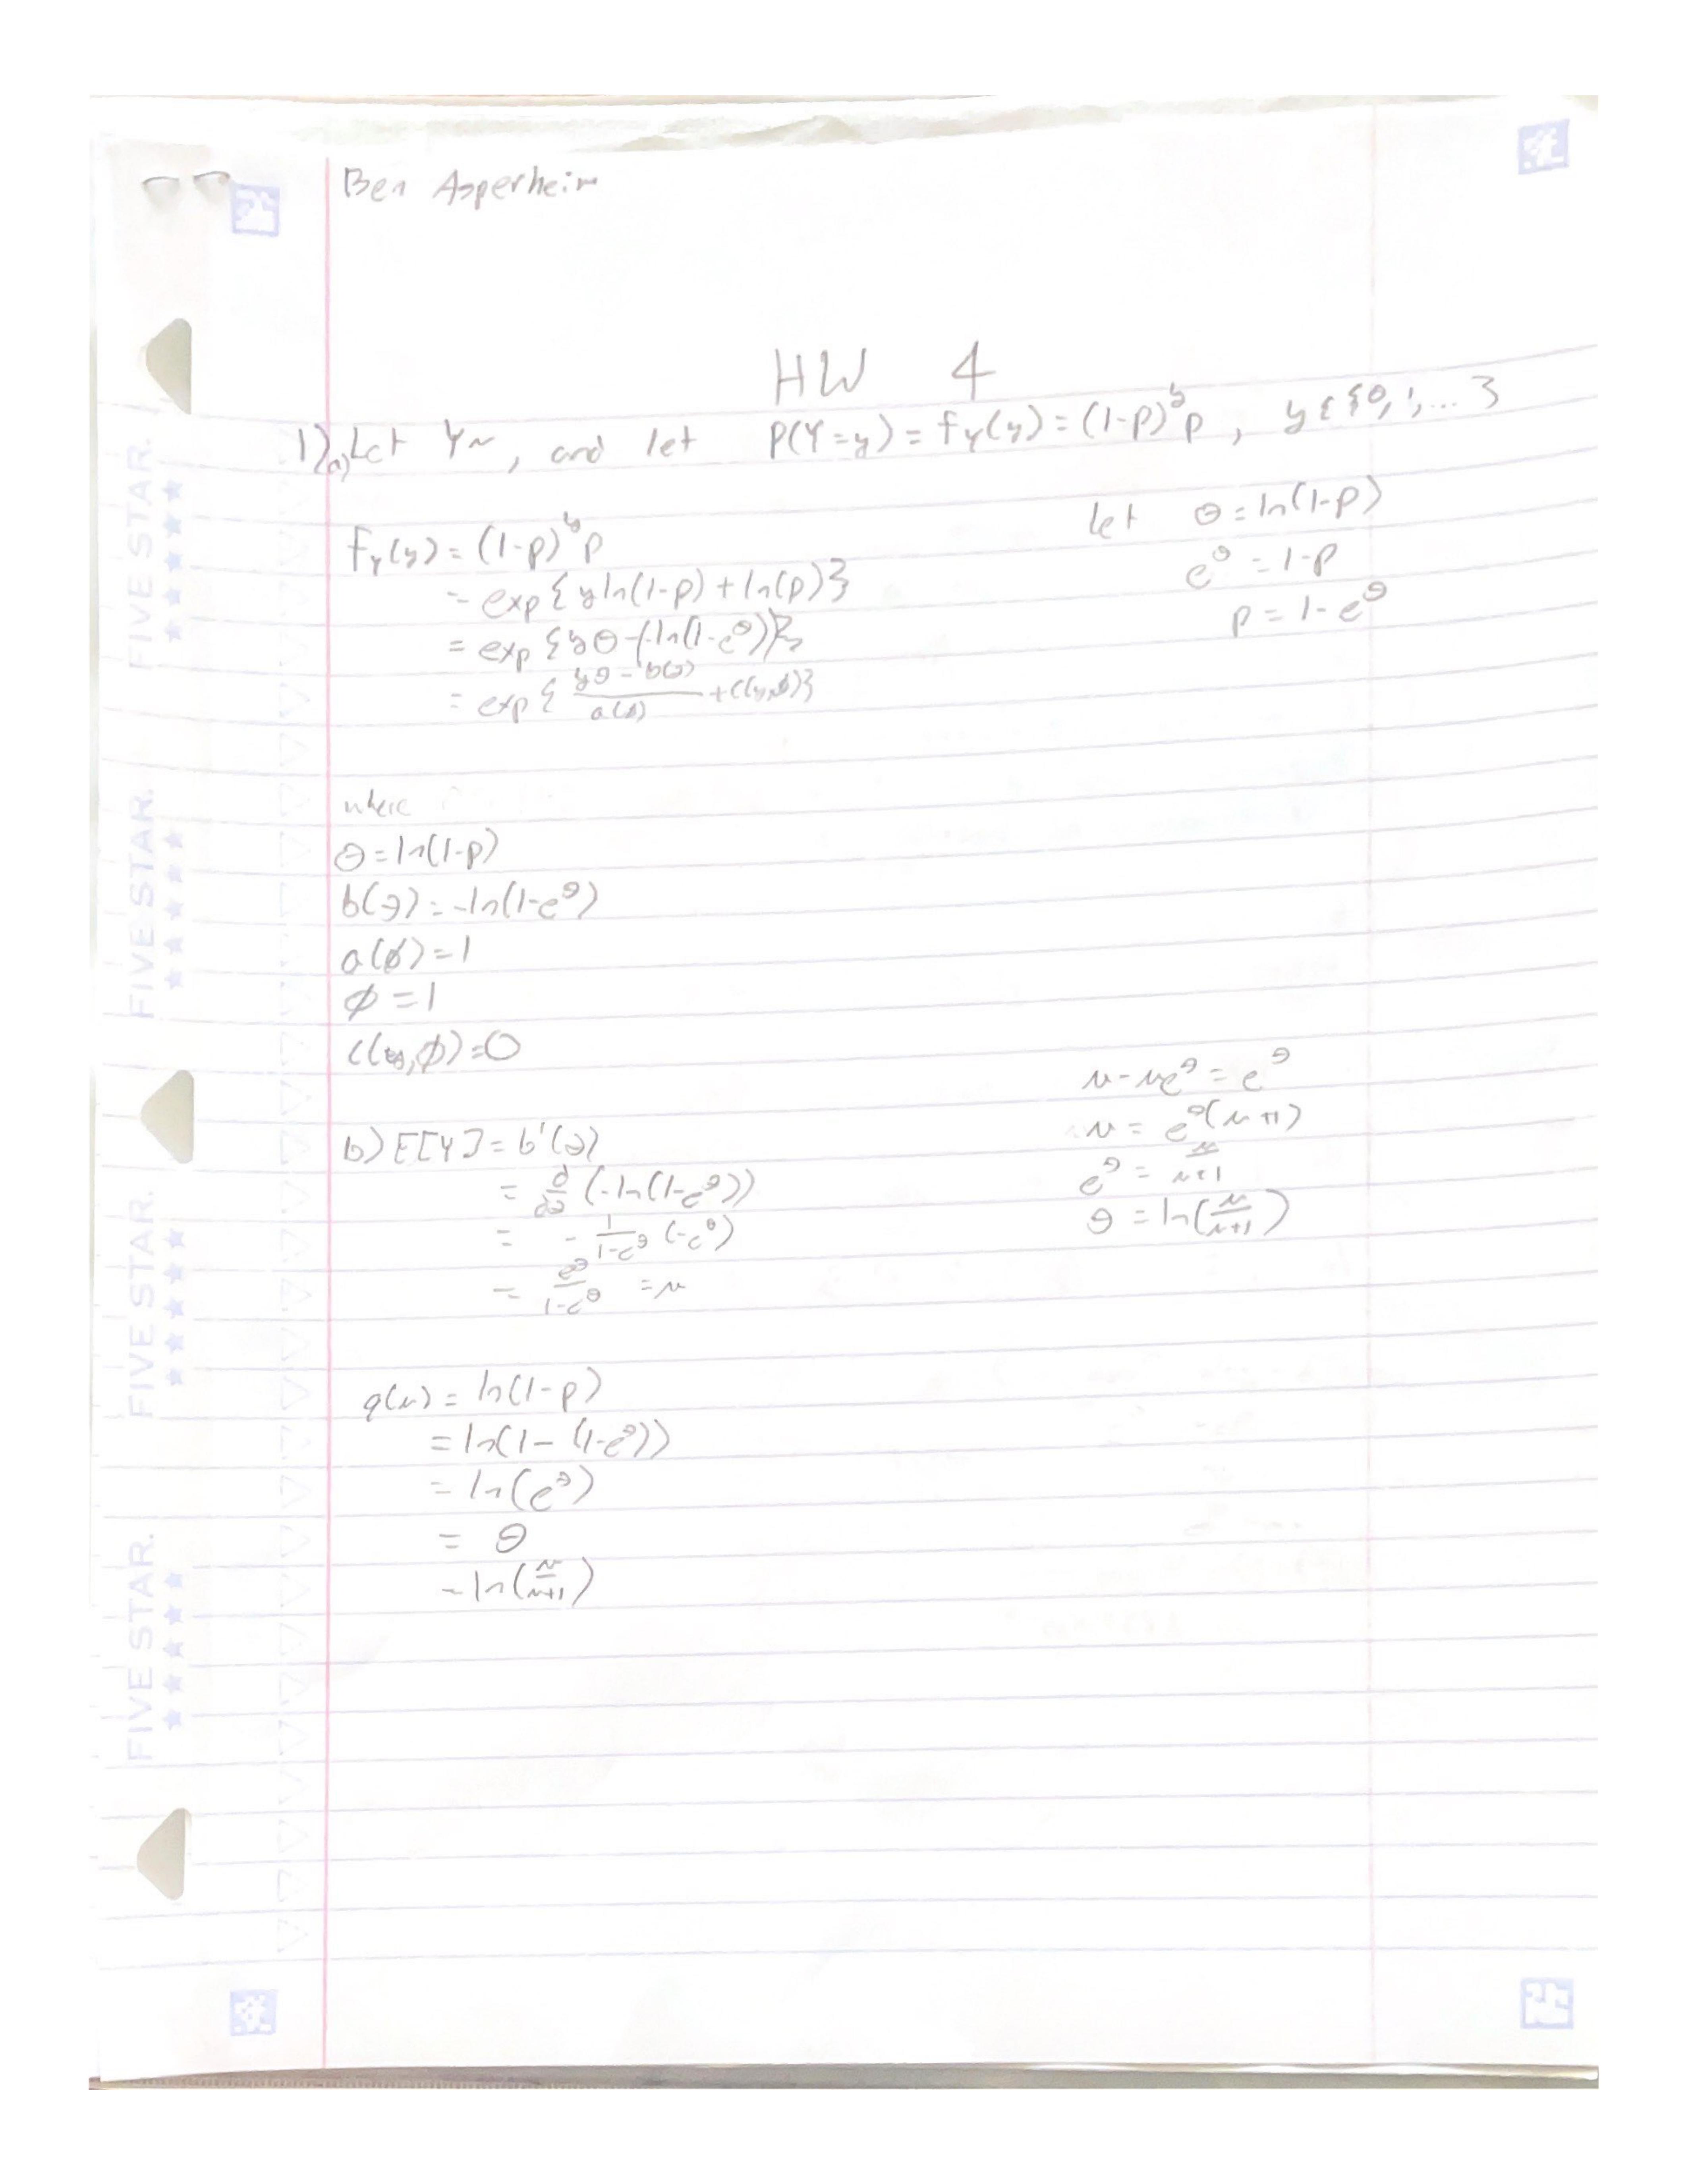 Ben Asperheim
HW 4
1)a) Let Y~, and let P(Y=y) = f_Y(y) = (1-p)^y p, y ε {0, 1, ... }
f_Y(y) = (1-p)^y p
= exp{y ln(1-p) + ln(p)}
= exp{yθ - (-ln(1-e^θ))}
= exp{(yθ - b(θ))/a(φ) + c(y,φ)}
let θ = ln(1-p)
e^θ = 1-p
p = 1-e^θ
where
θ = ln(1-p)
b(θ) = -ln(1-e^θ)
a(φ) = 1
φ = 1
c(y,φ) = 0
b) E[Y] = b'(θ)
= d/dθ (-ln(1-e^θ))
= - 1/(1-e^θ) (-e^θ)
= e^θ/(1-e^θ) = μ
μ - μe^θ = e^θ
μ = e^θ(μ+1)
e^θ = μ/(μ+1)
θ = ln(μ/(μ+1))
g(μ) = ln(1-p)
= ln(1-(1-e^θ))
= ln(e^θ)
= θ
= ln(μ/(μ+1))
FIVE STAR.
FIVE STAR.
FIVE STAR.
FIVE STAR.